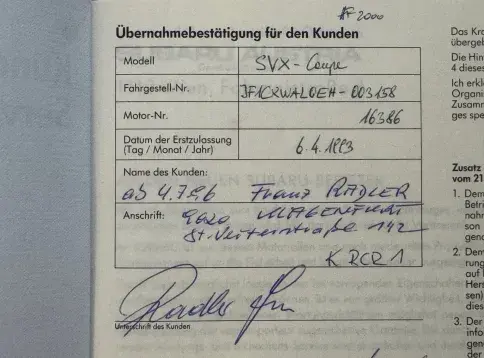 AF 2000
Übernahmebestätigung für den Kunden
Modell SVX-Coupe
Fahrgestell-Nr. JF1CRWALOEH-003158
Motor-Nr. 16386
Datum der Erstzulassung
(Tag / Monat / Jahr) 6.4.1993
Name des Kunden:
ab 4.7.96 Franz RADLER
Anschrift: 9020 KLAGENFURT
St. Veiterstraße 142
K RCR 1
Unterschrift des Kunden
Das Kra
übergeb
Die Hin
4 dieses
Ich erkl
Organi
Zusamm
ges spe
Zusatz
vom 21
1. Dem
Betri
nahr
son
geno
2. Dem
rung
auf
Hers
sen)
dies
3. Der
infor
gen
der